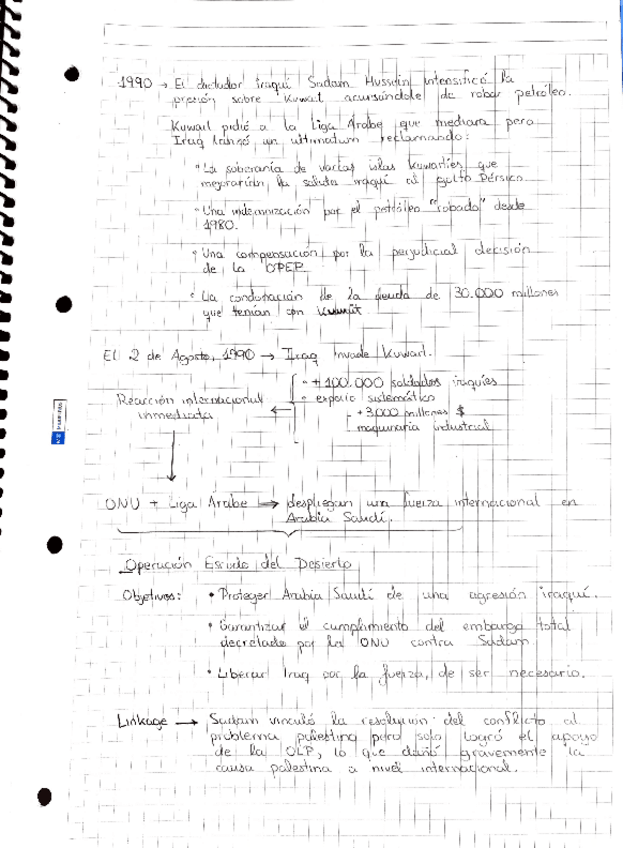 1990 → El dictador iraquí Sadam Hussein intensificó la
presión sobre Kuwait acusándole de robar petróleo.
Kuwait pidió a la Liga Árabe que mediara pero
Iraq lanzó un ultimatum reclamando:
• La soberanía de varias islas kuwaitíes que
mejorarían la salida iraquí al golfo Pérsico.
• Una indemnización por el petróleo "robado" desde
1980.
• Una compensación por la perjudicial decisión
de la OPEP.
• La condonación de la deuda de 30.000 millones
que tenían con Kuwait
El 2 de Agosto, 1990 → Iraq invade Kuwait.
• + 100.000 soldados iraquíes
Reacción internacional • expolio sistemático
inmediata ← - +3.000 millones $
- maquinaria industrial
ONU + Liga Árabe → despliegan una fuerza internacional en
Arabia Saudí.
Operación Escudo del Desierto
Objetivos: • Proteger Arabia Saudí de una agresión iraquí.
• Garantizar el cumplimiento del embargo total
decretado por la ONU contra Sadam
• Liberar Iraq por la fuerza, de ser necesario.
Linkage → Sadam vinculó la resolución del conflicto al
problema palestino pero solo logró el apoyo
de la OLP, lo que dañó gravemente la
causa palestina a nivel internacional.